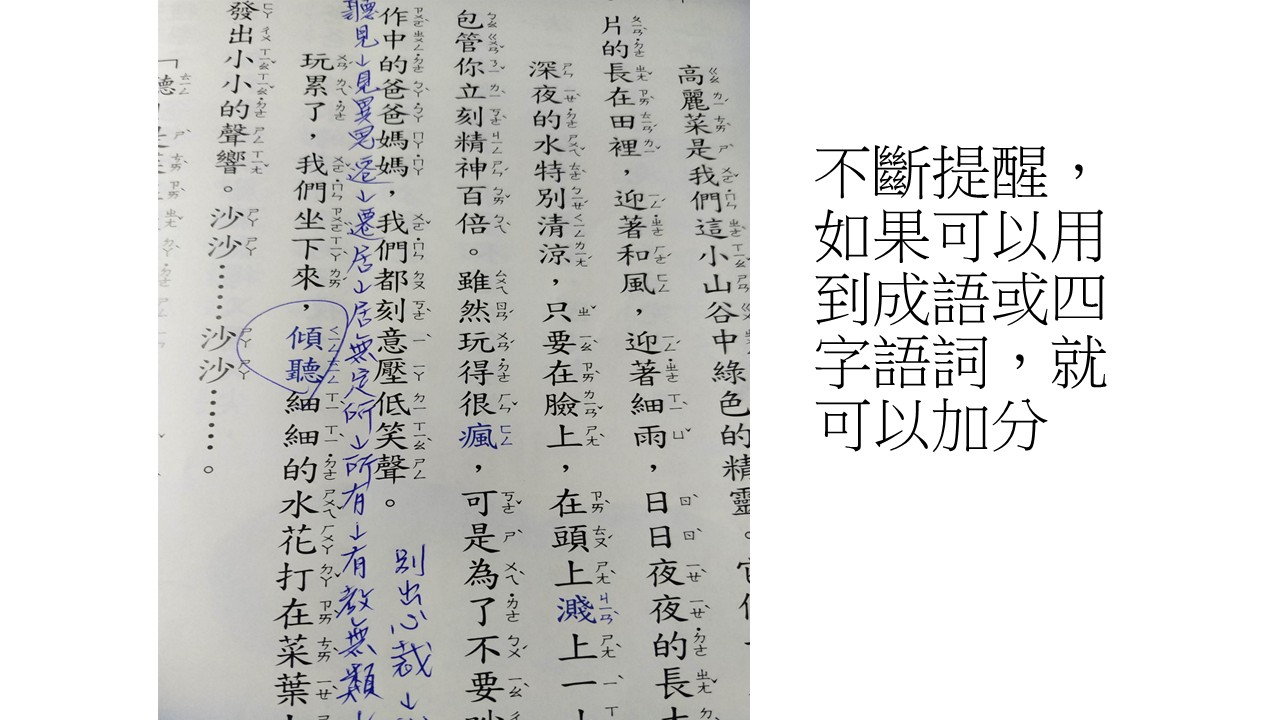 高麗菜是我們這小山谷中綠色的精靈。它
片的長在田裡，迎著和風，迎著細雨，日日夜夜的長
深夜的水特別清涼，只要在臉上，在頭上濺上一
包管你立刻精神百倍。雖然玩得很瘋，可是為了不要
作中的爸爸媽媽，我們都刻意壓低笑聲。
別出心裁↓
聽見↓見異思遷↓遷居↓居無定所↓所有↓有教無類
玩累了，我們坐下來，傾聽細細的水花打在菜葉
發出小小的聲響。沙沙……沙沙……。
「聽
不斷提醒，
如果可以用
到成語或四
字語詞，就
可以加分